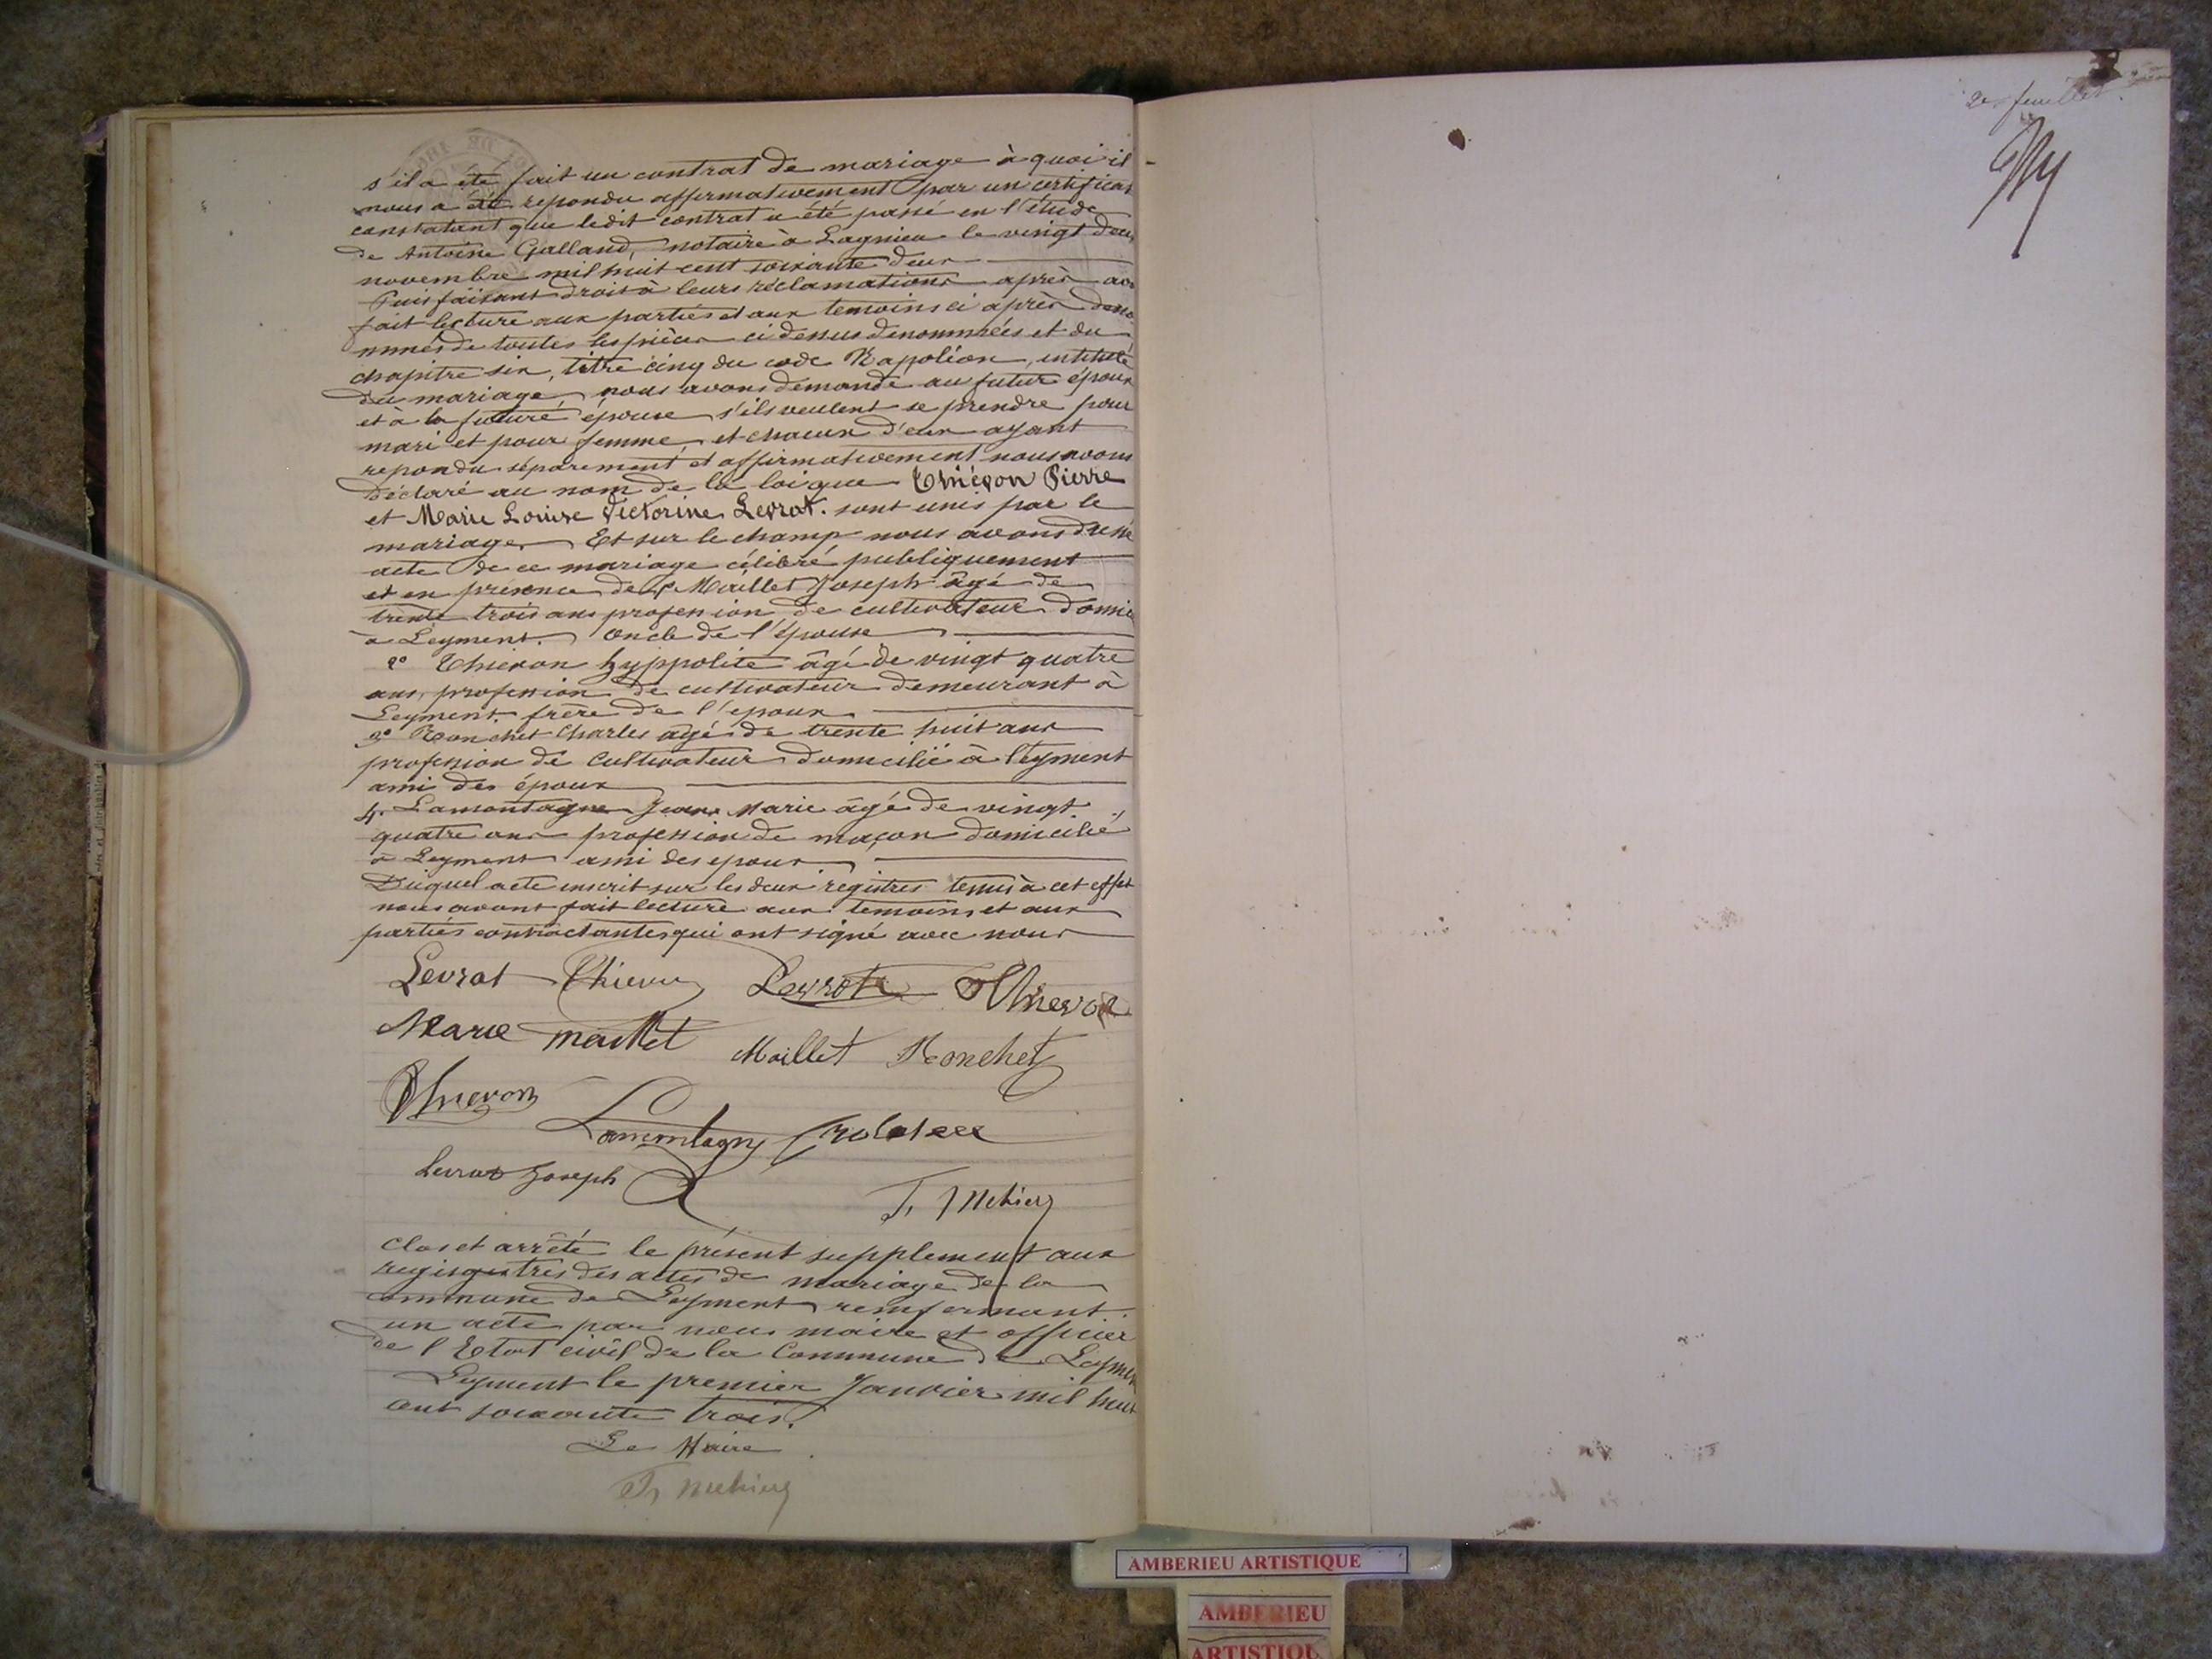 s'il a été fait un contrat de mariage à quoi il
nous a été repondu affirmativement par un certificat
constatant que ledit contrat a été passé en l'étude
de Antoine Galland, notaire à Lagnieu le vingt deux
novembre mil huit cent soixante deux
Puis faisant droit à leurs réclamations après avo
fait lecture aux parties et aux temoins ci après déno
mmés de toutes les pièces ci dessus denommées et du
chapitre six, titre cinq du code Napoléon, intitulé
du mariage, nous avons demandé au futur époux
et à la future épouse s'ils veulent se prendre pour
mari et pour femme, et chacun d'eux ayant
repondu séparement et affirmativement nous avons
Déclaré au nom de la loi que Thiévon Pierre
et Marie Louise Victorine Levrat. sont unis par le
mariage. Et sur le champ nous avons dressé
acte de ce mariage célébré publiquement
et en présence de 1° Maillet Joseph âgé de
trente trois ans profession de cultivateur domic
à Leyment. oncle de l'épouse
2° Thievon hyppolite âgé de vingt quatre
ans, profession de cultivateur demeurant à
Leyment. frère de l'epoux
3° Ronchet Charles âgé de trente huit ans
profession de cultivateur domicilié à Leyment
ami des époux
4. Lamontagne Jean Marie âgé de vingt
quatre ans profession de maçon domicilié
à Leyment ami des epoux
Duquel acte inscrit sur les deux registres tenus à cet effet
nous avons fait lecture aux temoins et aux
parties contractantes qui ont signé avec nous
Levrat Thievon Levrat Thievon
Marie Maillet Maillet Ronchet
Thievon
Lamontagne
Levrat Joseph
T. Mehier
Clos et arrêté le présent supplement aux
regisgistres des actes de mariage de la
commune de Leyment renfermant
un acte par nous maire et officier
de l'Etat civil de la Commune de Leymen
Leyment le premier Janvier mil huit
cent soixante trois.
Le Maire
T. Mehier
2e feuillet
AMBERIEU ARTISTIQUE
AMBERIEU
ARTISTIQU